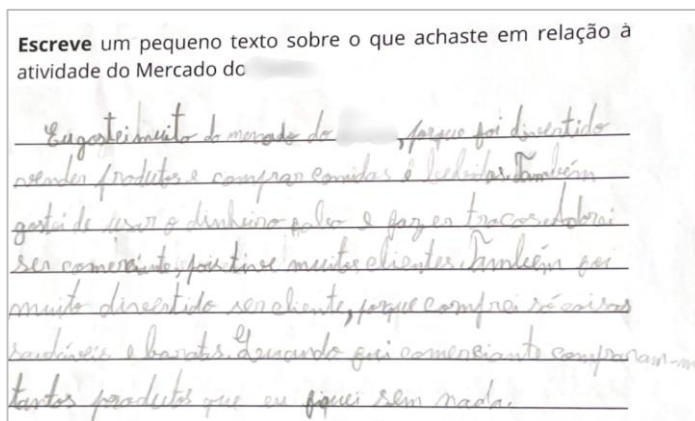 Escreve um pequeno texto sobre o que achaste em relação à
atividade do Mercado do
Eu gostei muito do mercado do , porque foi divertido
vender produtos e comprar comidas e bebidas. Também
gostei de usar o dinheiro falso e fazer trocos. Adorei
ser comerciante, pois tive muitos clientes. Também foi
muito divertido ser cliente, porque comprei só coisas
saudáveis e baratas. Quando fui comerciante compraram-m
tantos produtos que eu fiquei sem nada.